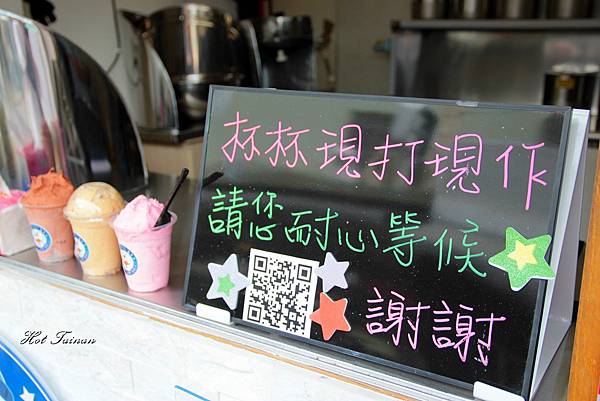 杯杯現打現作
請您耐心等候
謝謝
Hot Tainan